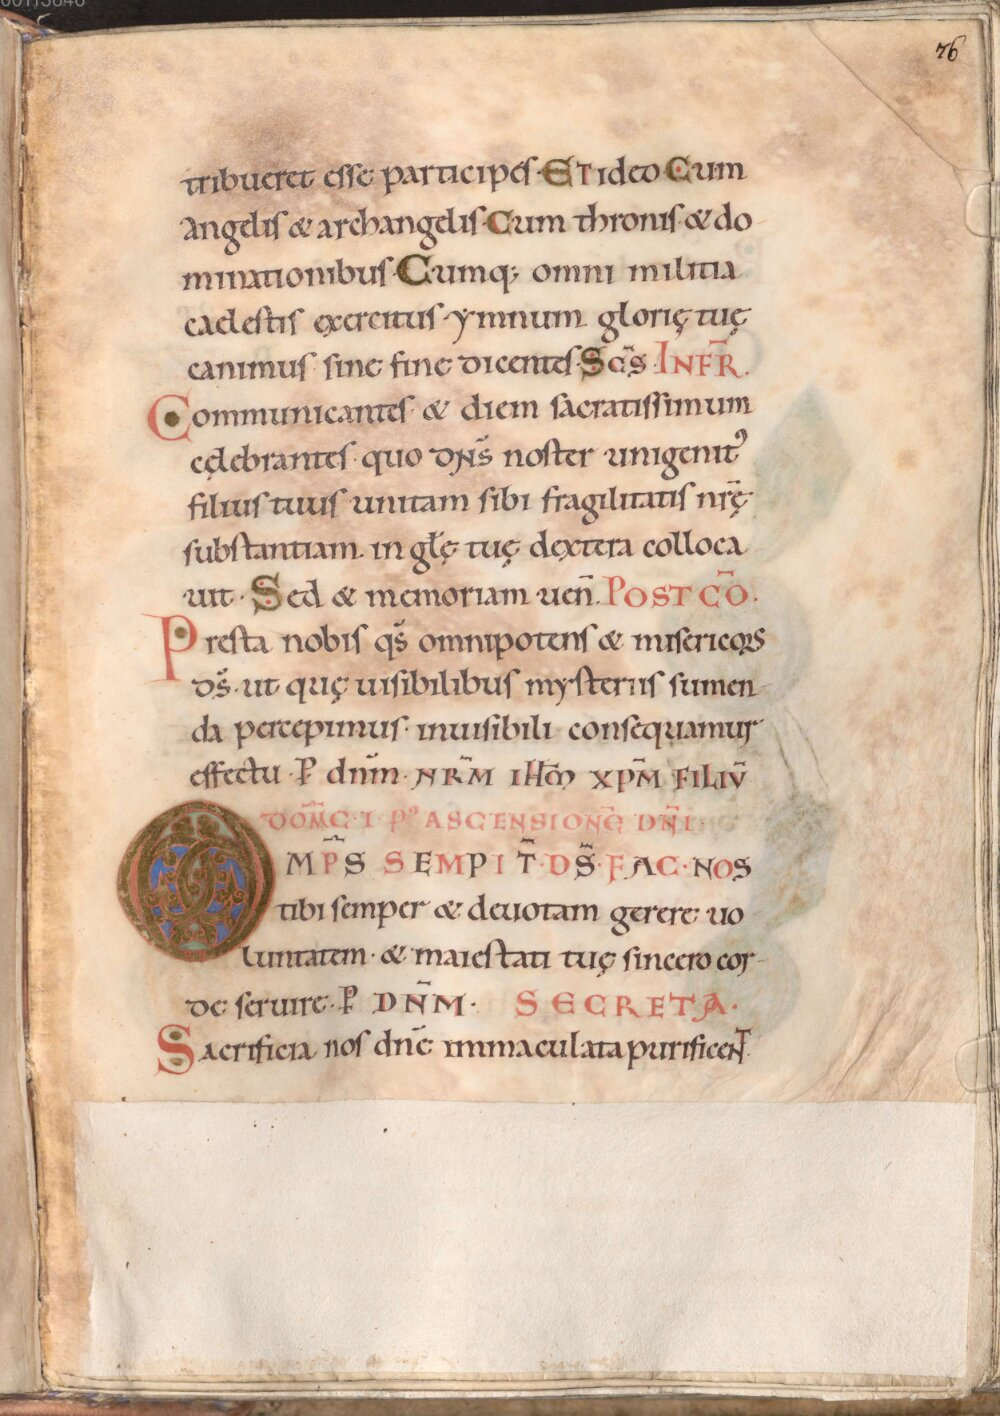 76
tribueret esse participes· ET ideo Cum
angelis & archangelis· Cum thronis· & do
minationibus· Cumq; omni militia
caelestis exercitus· ymnum glorię tuę
canimus sine fine dicentes· Sc̄s· INFR̄.
Communicantes· & diem sacratissimum
cęlebrantes· quo dn̄s noster unigenitꝰ
filius tuus unitam sibi fragilitatis nr̄ę
substantiam· in gl̄ę tuę dextera colloca
uit· Sed & memoriam uen̄. POST CŌ.
Presta nobis qs̄ omnipotens & misericors
ds̄· ut quę uisibilibus mysteriis sumen
da percepimus· inuisibili consequamur
effectu· P dnm̄· NR̄M IHM̄ XPM̄ FILIV̄
DOM̄C· I· Pº ASCENSIONĒ DN̄I·
OMP̄S SEMPIT̄· DS̄· FAC· NOS
tibi semper & deuotam gerere uo
luntatem· & maiestati tuę sincero cor-
de seruire· P DN̄M· SECRETA·
Sacrificia nos dn̄e immaculata purificeNT